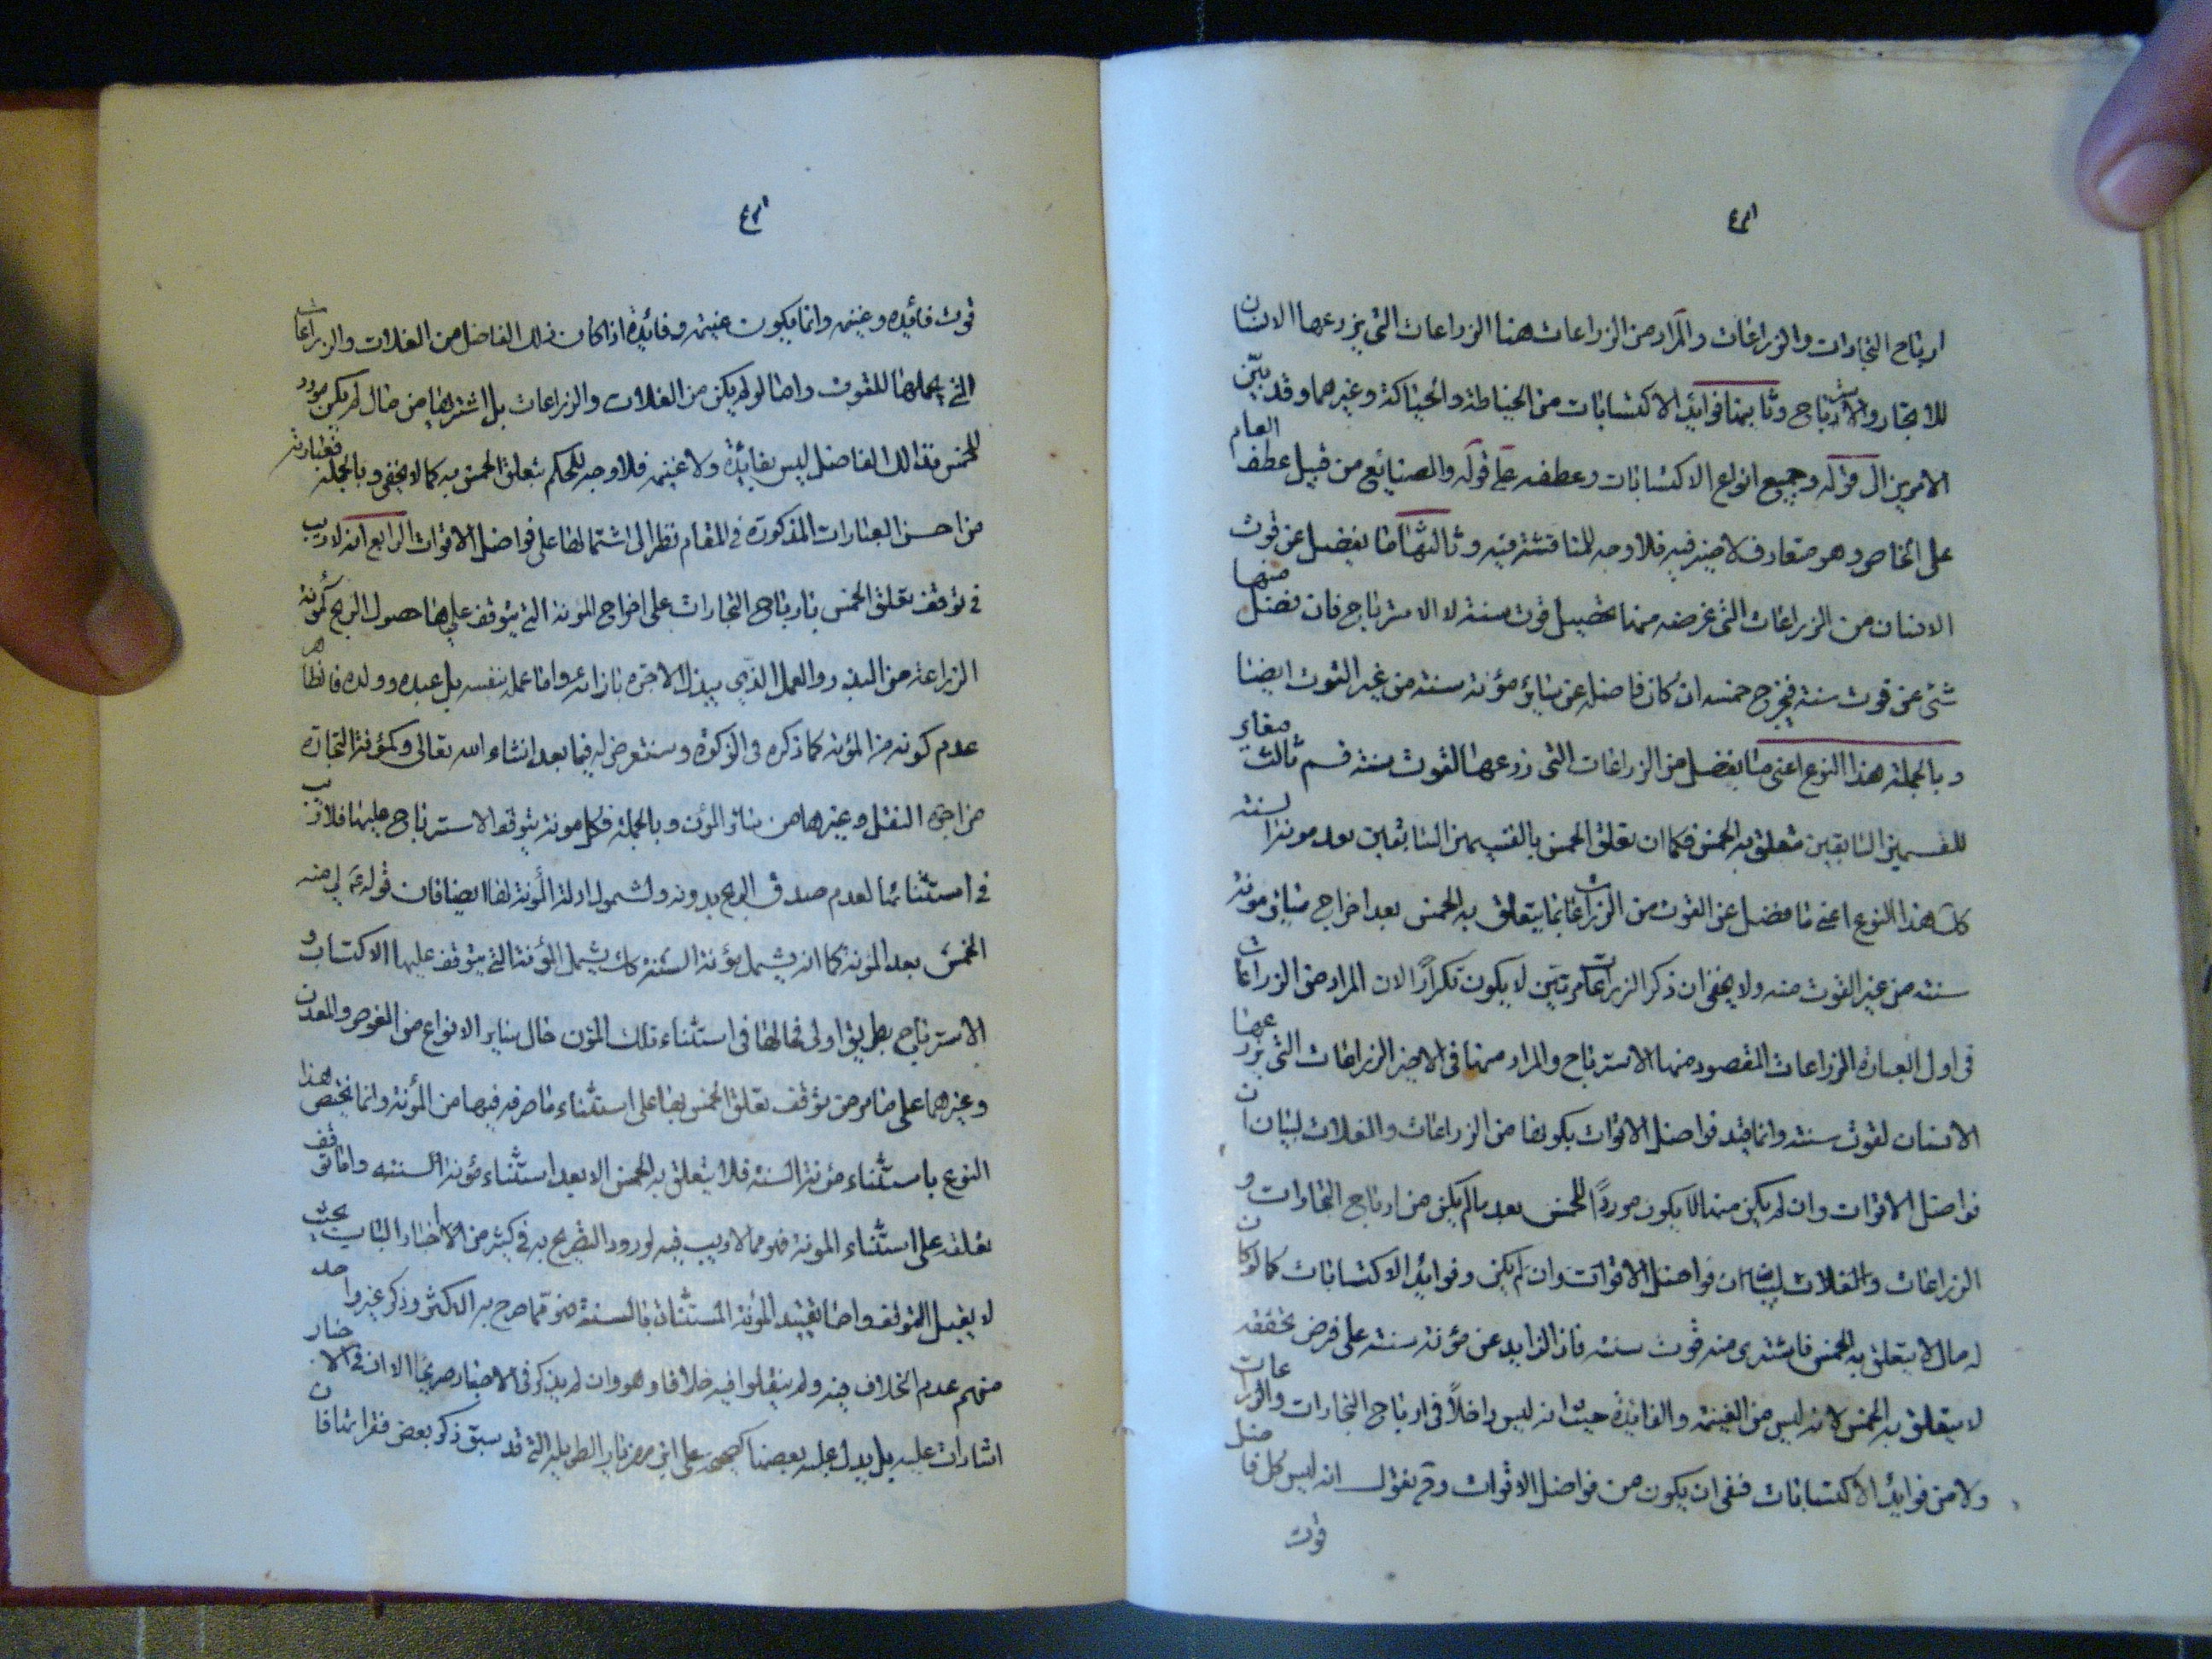 ارباح التجارات والزراعات والمراد من الزراعات هنا الزراعات التى يزرعها الانسان
للاتجار والارباح وثانيهما فوايد الاكتسابات من الخياطة والحياكة وغيرهما وقد بيّن
الامرين الى قوله وجميع انواع الاكتسابات وعطفه على قوله والصنايع من قبيل عطف العام
على الخاص وهو متعارف لا ضير فيه فلا وجه للمناقشة فيه وثالثها ما يفضل عن قوت
الانسان من الزراعات التى غرضه منها تحصيل قوت سنة لا الاسترباح فان فضل منها
شئ عن قوت سنة فيخرج خمسه ان كان فاضلا عن ساير مؤنة سنة من غير القوت ايضا
وبالجملة هذا النوع اعنى ما يفضل من الزراعات التى زرعها لقوت سنة قسم ثالث مغاير
للقسمين السابقين متعلق به الخمس فكما ان تعلق الخمس بالقسمين السابقين بعد مونة السنة
كك هذا النوع اعنى ما فضل عن القوت من الزراعات انما يتعلق به الخمس بعد اخراج ساير مونة
سنة من غير القوت منه ولا يخفى ان ذكر الزراعات مرتين لا يكون تكرارًا لان المراد من الزراعات
فى اول العبارة الزراعات المقصود منها الاسترباح والمراد منها فى الاخير الزراعات التى يزرعها
الانسان لقوت سنة وانما قيد فواضل الاقوات بكونها من الزراعات والغلات لبيان ان
فواضل الاقوات وان لم يكن منها لا يكون موردًا للخمس بعد ما لم يكن من ارباح التجارات و
الزراعات والغلات لبيان ان فواضل الاقوات وان لم يكن وفوايد الاكتسابات كما لو كان
له مال لا يتعلق به الخمس فاشترى منه قوت سنة فان الزايد عن مؤنة سنة على فرض تحققه
لا يتعلق به الخمس لانه ليس من الغنيمة والفائدة حيث انه ليس داخلًا فى ارباح التجارات والزراعات
ولا من فوايد الاكتسابات فبقى ان يكون من فواضل الاقوات وح نقول انه ليس كل فاضل
قوت
قوت فائده وغنيمه وانما يكون غنيمة وفائدة اذا كان ذلك الفاضل من الغلات والزراعات
التى يحملها للقوت واما لو لم يكن من الغلات والزراعات بل اشتراها من مال لم يكن مورد
للخمس فذالك الفاضل ليس بفايدة ولا غنيمه فلا وجه للحكم بتعلق الخمس به كما لا يخفى وبالجملة فعبارته
من احسن العبارات المذكورة فى المقام نظرا الى اشتمالها على فواضل الاقوات الرابع انه لا ريب
فى توقف تعلق الخمس بارباح التجارات على اخراج المؤنة التى يتوقف عليها حصول الربح كمؤنة
الزراعة من البذر والعمل الذى يبذل الاجرة بازائه واما عمله بنفسه بل عبده وولده فالظاهر
عدم كونه من المؤنه كما ذكره فى الزكوة وسنتعرض له فيما بعد انشاء الله تعالى وكمؤنة التجارة
من اجرة النقل وغيرها من ساير المؤن وبالجملة فكل مونة يتوقف الاسترباح عليها فلا ريب
فى استثنائها لعدم صدق الربح بدونه ولشمول ادلة المؤنة لها ايضا فان قوله ع لى منه
الخمس بعد المؤنة كما انه يشمل مؤنة السنة كك يشمل المؤنة التى يتوقف عليها الاكتساب و
الاسترباح بطريق اولى فحالها فى استثناء تلك المؤن حال ساير الانواع من الغوص والمعدن
وغيرهما على ما مر من توقف تعلق الخمس بها على استثناء ما صرف فيها من المؤنة وانما يختص هذا
النوع باستثناء مؤنة السنة فلا يتعلق به الخمس الا بعد استثناء مؤنة السنة واما توقف
تعلقه على استثناء المونة فهو مما لا ريب فيه لورود التصريح به فى كثير من الاخبار الباب بحيث
لا يقبل التوقف واما تقييد المؤنة المستثناة بالسنة فهو مما صرح به الاكثر وذكر غير واحد
منهم عدم الخلاف فيه ولم ينقلوا فيه خلافا وهو وان لم يذكر فى الاخبار صريحًا الا ان فى الاخبار
اشارات عليه بل يدل عليه بعضها كصحيحة على ابن مهزيار الطويلة التى قد سبق ذكر بعض فقراتها فان